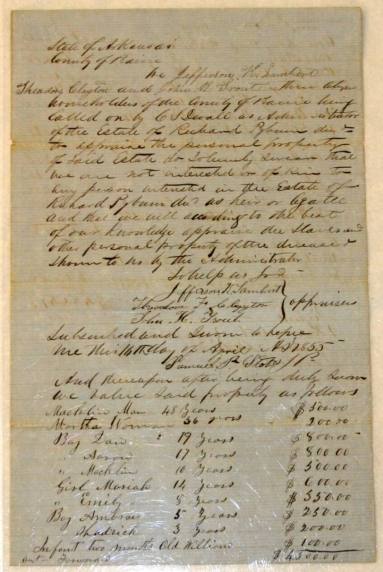 State of Arkansas
County of
We Jefferson K. Lambert
Theodore Clayton and John H. Trout three
householders of the County of being
called on by C S as Administrator
of the Estate of Richard Pyburn decd
to appraise the personal property
of said Estate do Solemnly Swear that
we are not interested or of Kin to
any person interested in the Estate of
Richard Pyburn decd as heir or legatee
and that we will according to the best
of our knowledge appraise the Slaves and
other personal property of the deceased
shown to us by the Administrator
So help us God
Lambert
F. Clayton } appraisers
John H. Trout
Subscribed and Sworn to before
me this day of April AD 1855
Samuel J.P.
And thereupon after being duly Sworn
we value said property as follows
Man 48 Years $ 500.00
Martha Woman 36 200.00
Boy Dan " 19 Years $ 800.00
" Aaron 17 Years $ 800.00
" Macklin 10 Years $ 500.00
Girl Mariah 14 Years $ 600.00
" Emily 8 Years $ 350.00
Boy Ambrose 5 Years $ 250.00
" Shadrich 3 Years $ 200.00
Infant two months Old William $ 100.00
Amt Forwarded $ 4300.00